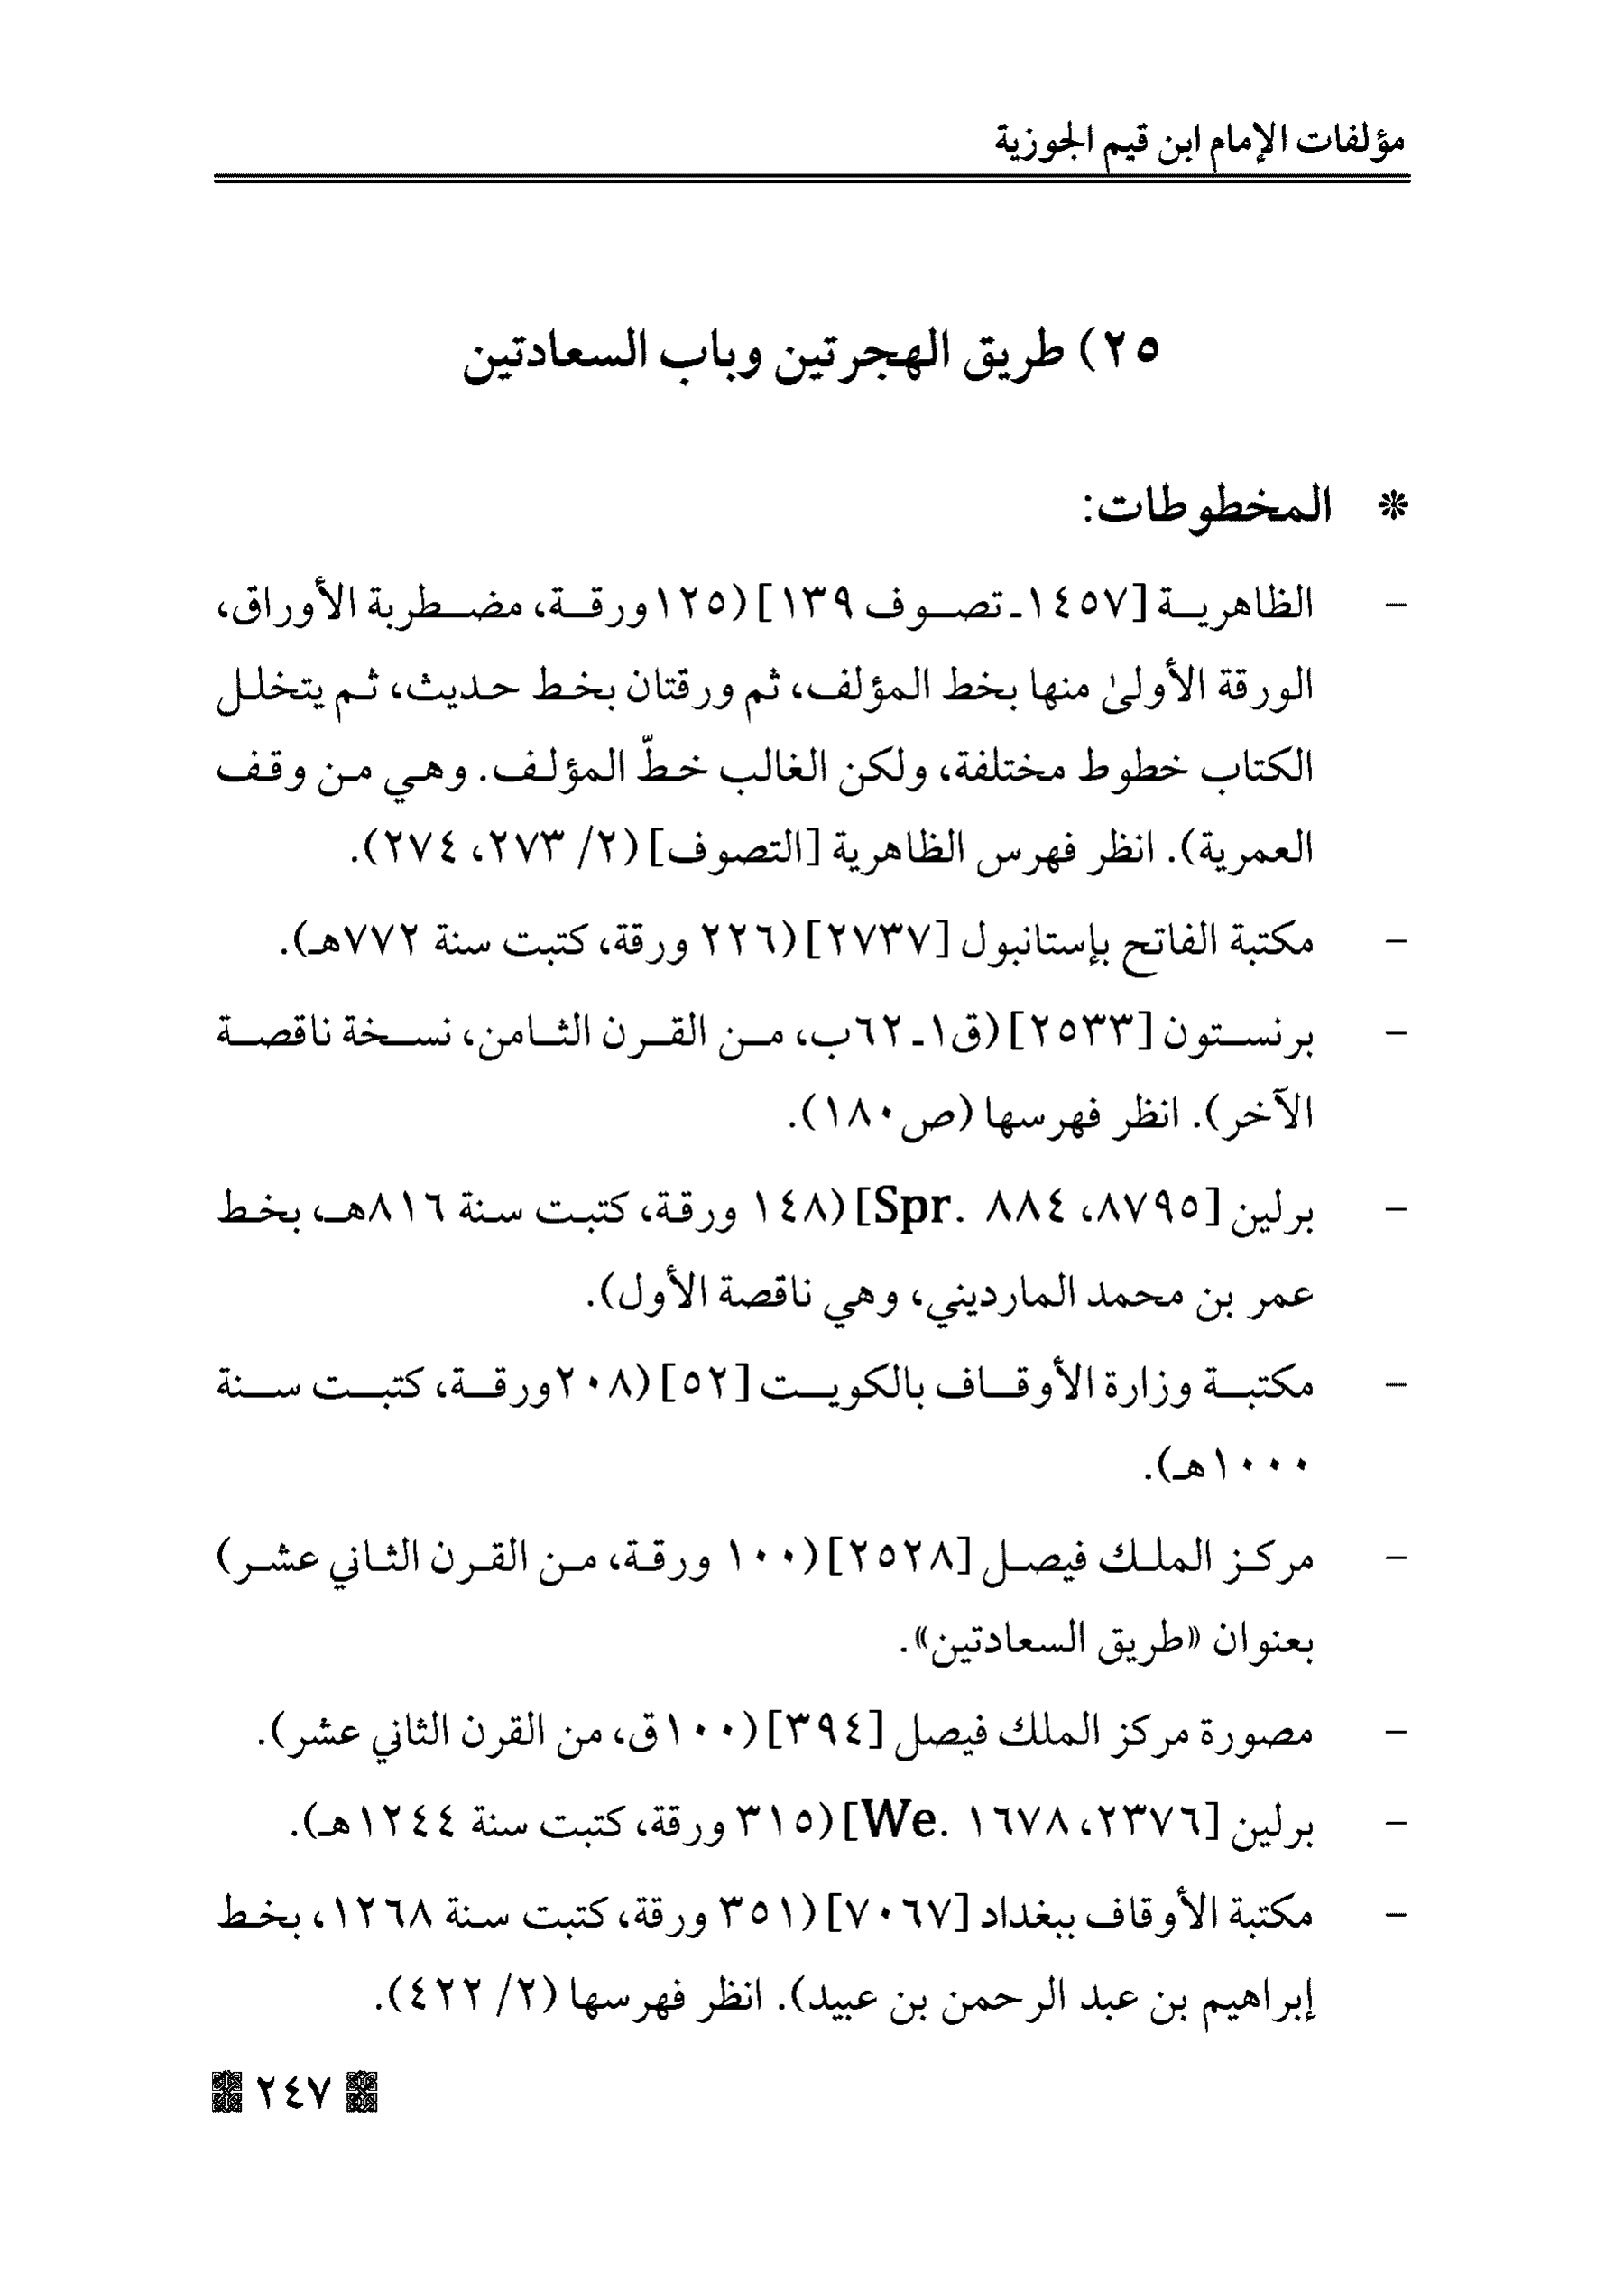 مؤلفات الإمام ابن قيم الجوزية
٢٥) طريق الهجرتين وباب السعادتين
* المخطوطات:
- الظاهرية [١٤٥٧ـ تصوف ١٣٩] (١٢٥ ورقة، مضطربة الأوراق،
الورقة الأولىٰ منها بخط المؤلف، ثم ورقتان بخط حديث، ثم يتخلل
الكتاب خطوط مختلفة، ولكن الغالب خطّ المؤلف. وهي من وقف
العمرية). انظر فهرس الظاهرية [التصوف] (٢/ ٢٧٣، ٢٧٤).
- مكتبة الفاتح بإستانبول [٢٧٣٧] (٢٢٦ ورقة، كتبت سنة ٧٧٢هـ).
- برنستون [٢٥٣٣] (ق١ـ ٦٢ب، من القرن الثامن، نسخة ناقصة
الآخر). انظر فهرسها (ص١٨٠).
- برلين [٨٧٩٥، Spr. ٨٨٤] (١٤٨ ورقة، كتبت سنة ٨١٦هـ، بخط
عمر بن محمد المارديني، وهي ناقصة الأول).
- مكتبة وزارة الأوقاف بالكويت [٥٢] (٢٠٨ورقة، كتبت سنة
١٠٠٠هـ).
- مركز الملك فيصل [٢٥٢٨] (١٠٠ ورقة، من القرن الثاني عشر)
بعنوان «طريق السعادتين».
- مصورة مركز الملك فيصل [٣٩٤] (١٠٠ق، من القرن الثاني عشر).
- برلين [٢٣٧٦، We. ١٦٧٨] (٣١٥ ورقة، كتبت سنة ١٢٤٤هـ).
- مكتبة الأوقاف ببغداد [٧٠٦٧] (٣٥١ ورقة، كتبت سنة ١٢٦٨، بخط
إبراهيم بن عبد الرحمن بن عبيد). انظر فهرسها (٢/ ٤٢٢).
٢٤٧